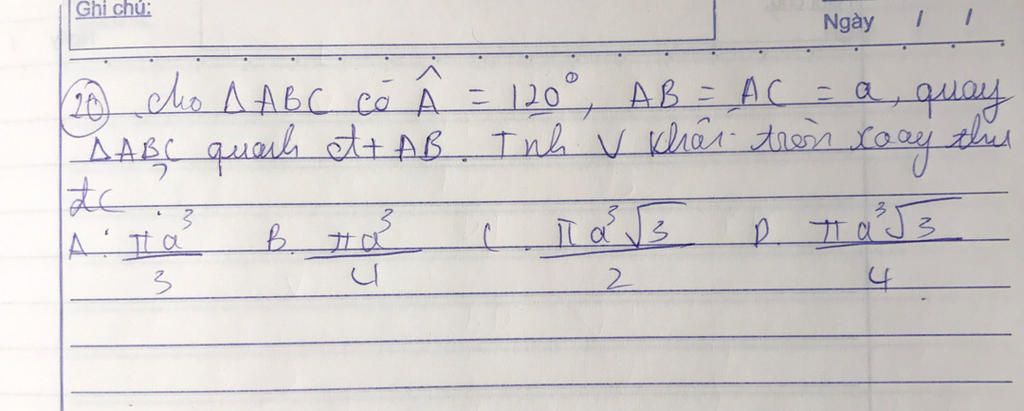 Ghi chú:
Ngày / /
20 Cho Δ ABC có Â = 120°, AB = AC = a, quay
Δ ABC quanh đt AB. Tính V khối tròn xoay thu
đc ?
A. πa³/3 B. πa³/4 C. πa³√3/2 D. πa³√3/4